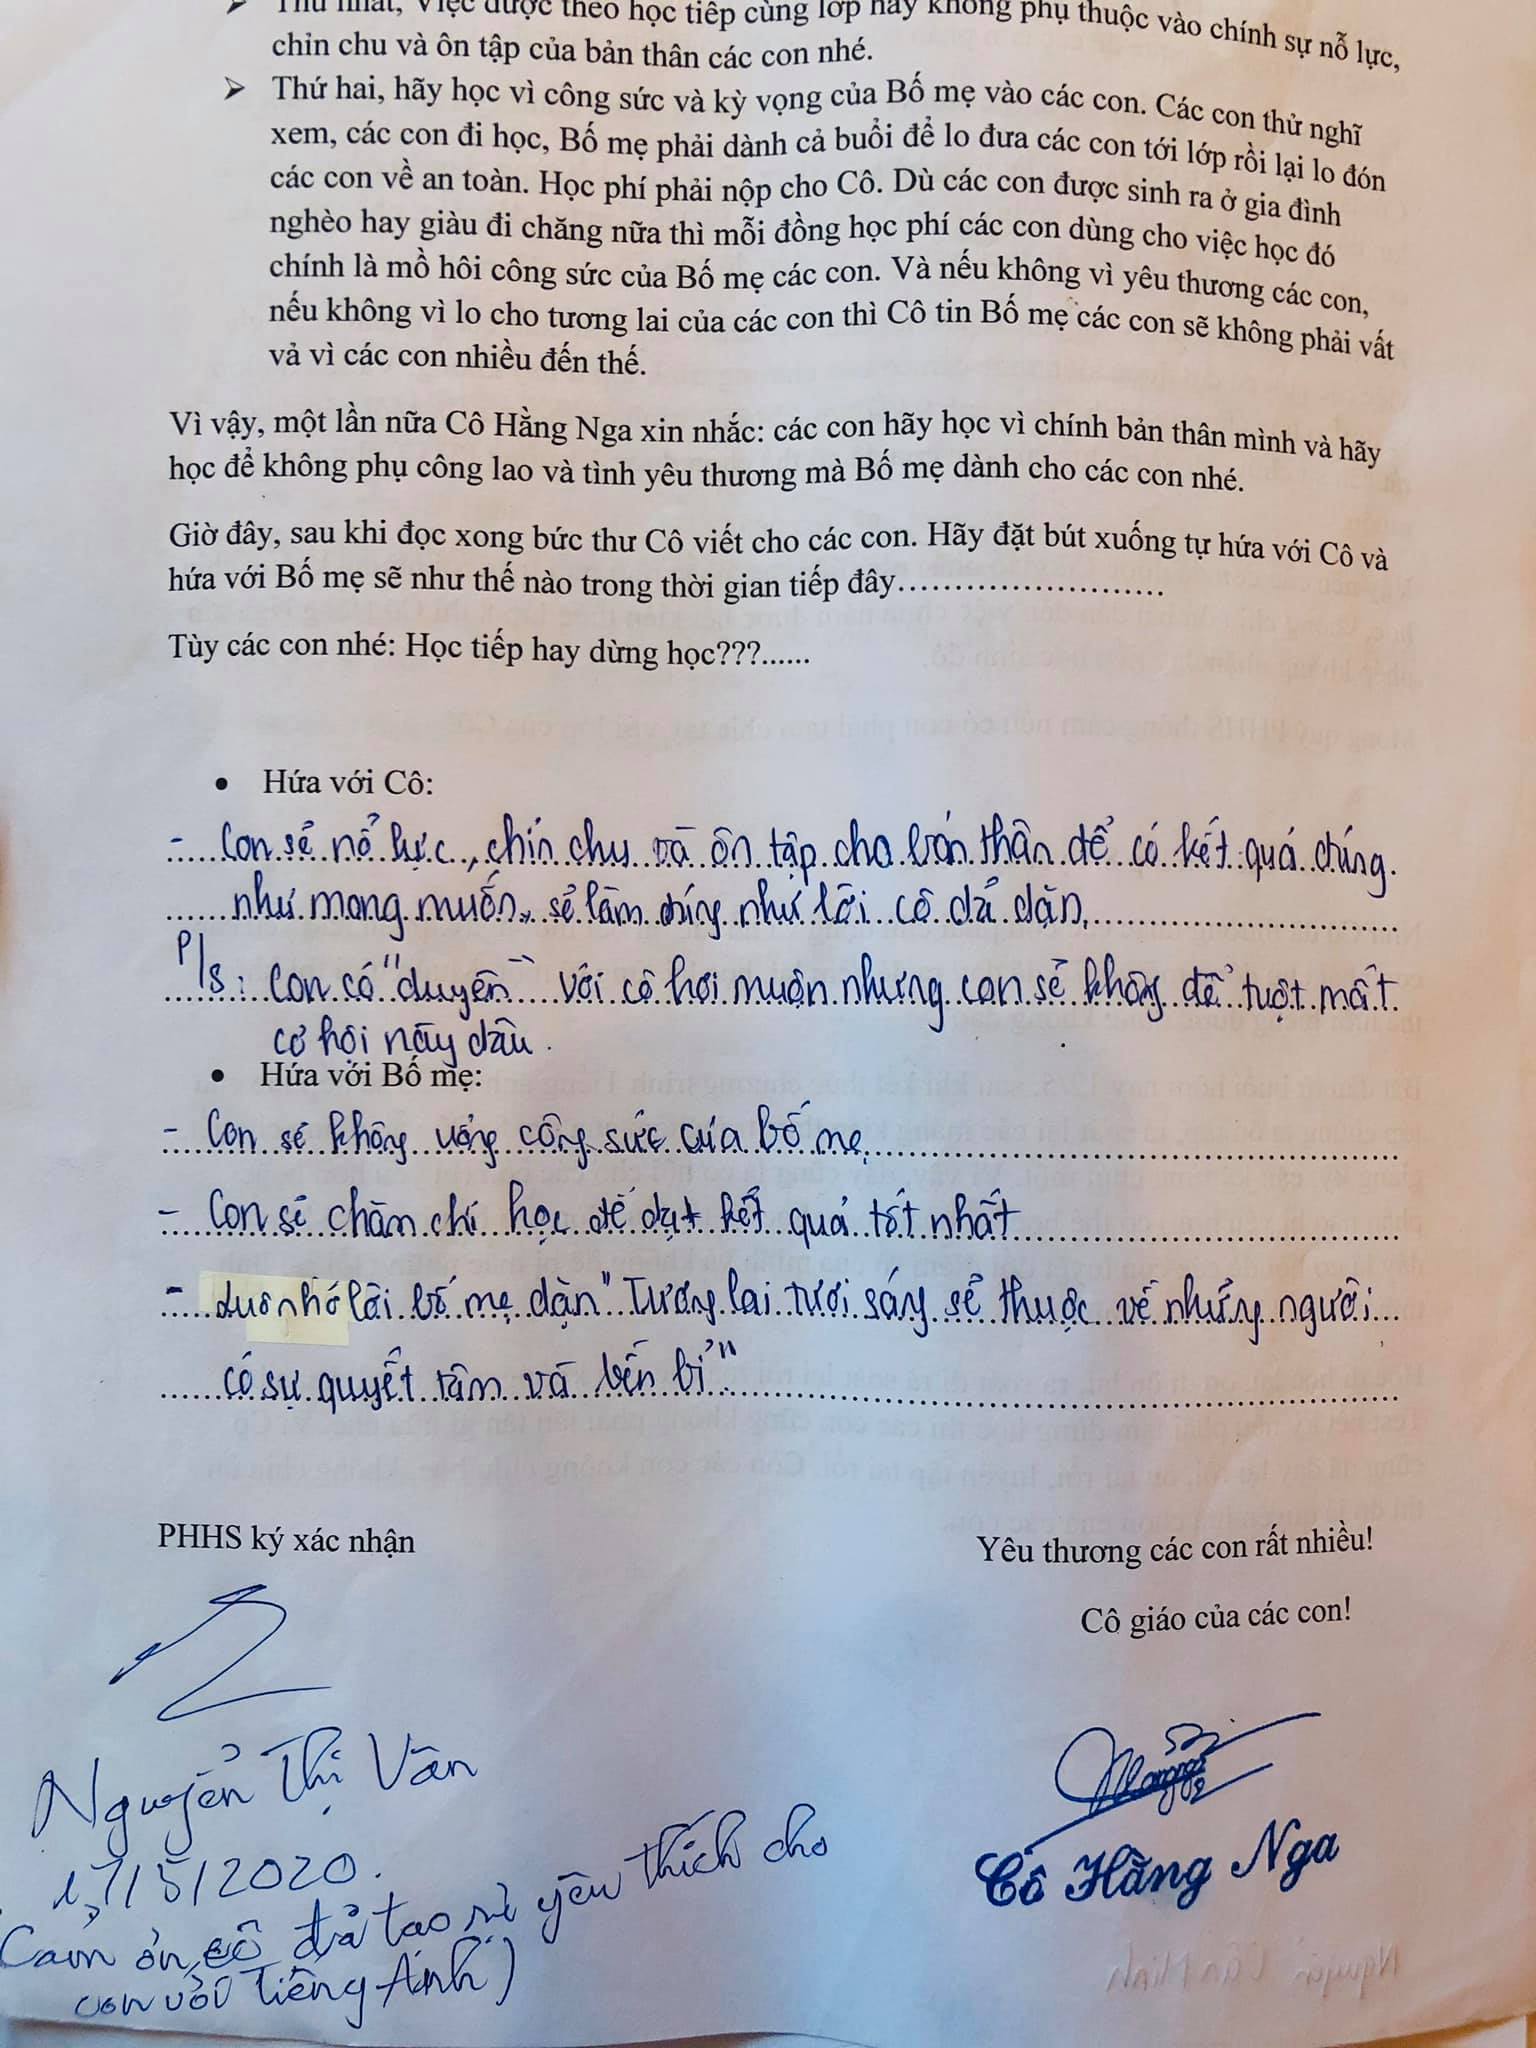 ➤ Thứ nhất, việc được theo học tiếp cùng lớp hay không phụ thuộc vào chính sự nỗ lực,
chỉn chu và ôn tập của bản thân các con nhé.
➤ Thứ hai, hãy học vì công sức và kỳ vọng của Bố mẹ vào các con. Các con thử nghĩ
xem, các con đi học, Bố mẹ phải dành cả buổi để lo đưa các con tới lớp rồi lại lo đón
các con về an toàn. Học phí phải nộp cho Cô. Dù các con được sinh ra ở gia đình
nghèo hay giàu đi chăng nữa thì mỗi đồng học phí các con dùng cho việc học đó
chính là mồ hôi công sức của Bố mẹ các con. Và nếu không vì yêu thương các con,
nếu không vì lo cho tương lai của các con thì Cô tin Bố mẹ các con sẽ không phải vất
vả vì các con nhiều đến thế.
Vì vậy, một lần nữa Cô Hằng Nga xin nhắc: các con hãy học vì chính bản thân mình và hãy
học để không phụ công lao và tình yêu thương mà Bố mẹ dành cho các con nhé.
Giờ đây, sau khi đọc xong bức thư Cô viết cho các con. Hãy đặt bút xuống tự hứa với Cô và
hứa với Bố mẹ sẽ như thế nào trong thời gian tiếp đây……………………
Tùy các con nhé: Học tiếp hay dừng học???......
• Hứa với Cô:
- Con sẻ nổ lực, chỉn chu và ôn tập cho bản thân để có kết quả chúng
như mong muốn, sẻ làm đúng như lời cô dả dặn.
P/s: Con có "duyên" với cô hơi muộn nhưng con sẻ không để tuột mất
cơ hội này dâu.
• Hứa với Bố mẹ:
- Con sẻ không uổng công sức của bố mẹ
- Con sẻ chăm chỉ học để dạt kết quả tốt nhất
- Luôn nhớ lời bố mẹ dặn "Tương lai tươi sáng sẻ thuộc về những người
có sự quyết tâm và bền bỉ"
PHHS ký xác nhận
Yêu thương các con rất nhiều!
Cô giáo của các con!
Nguyễn Thị Vân
Cô Hằng Nga
17/5/2020.
Cảm ơn cô đã tạo sự yêu thích cho
con với Tiếng Anh)